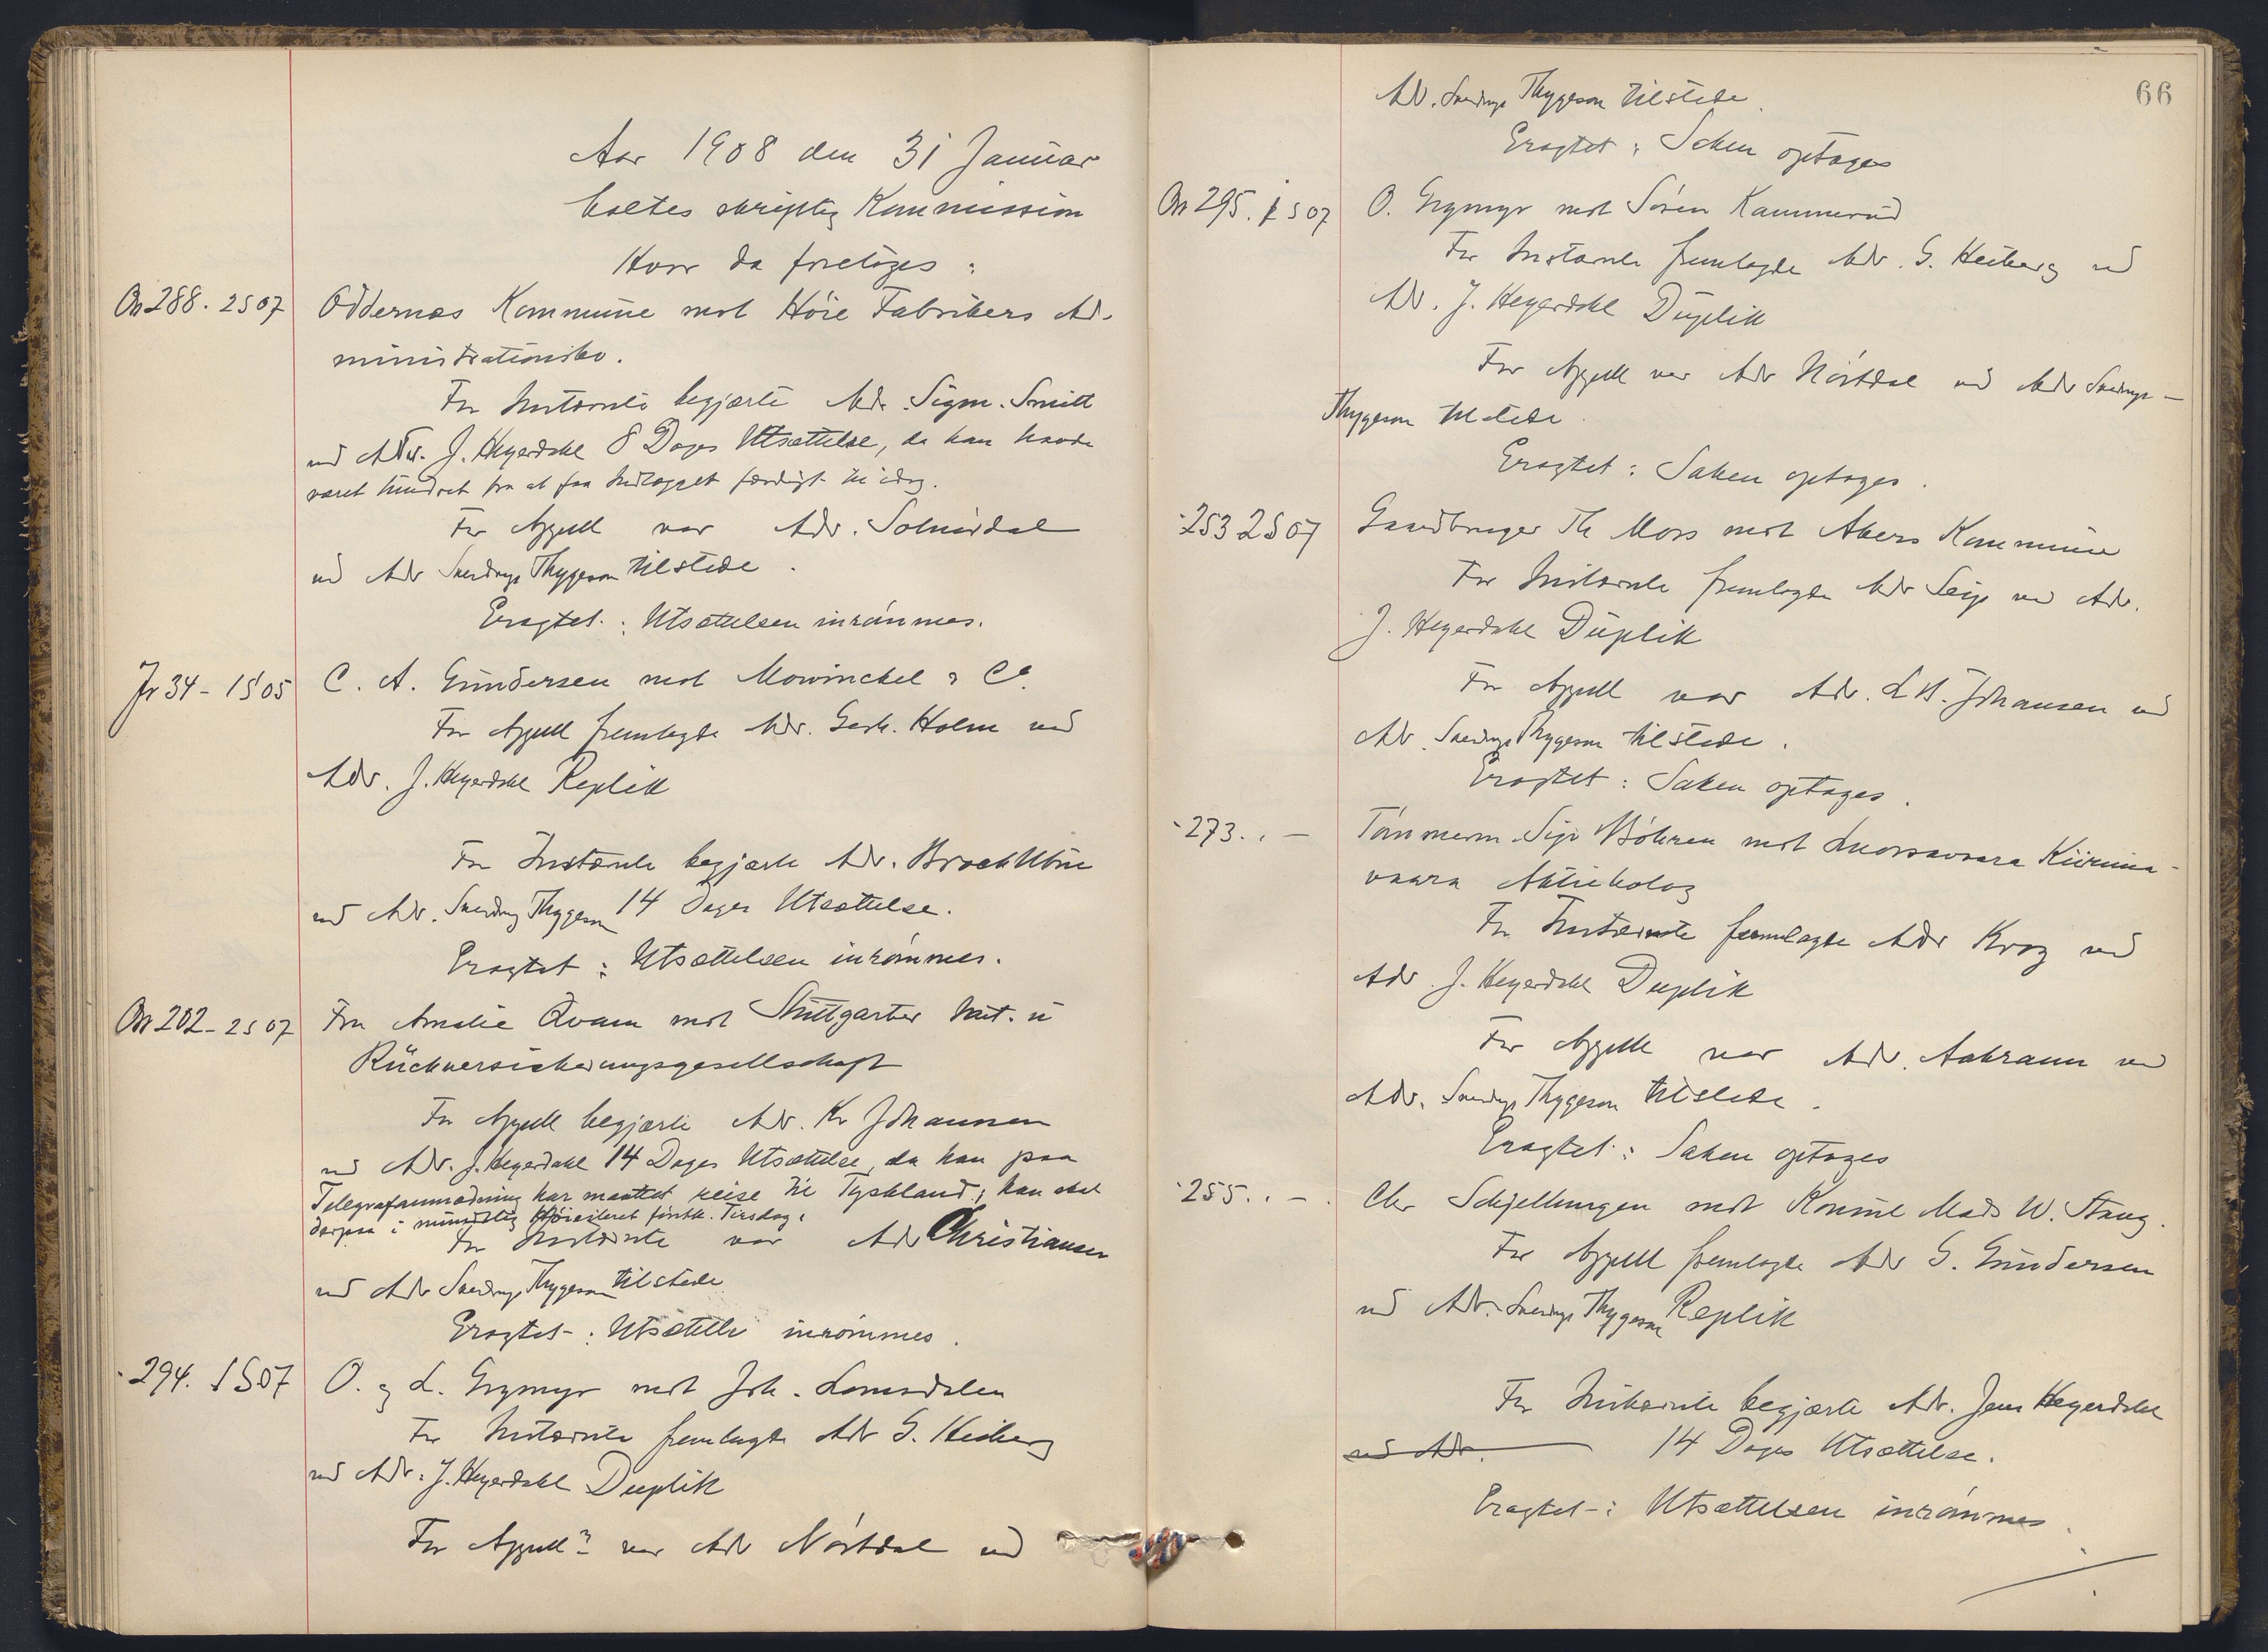 Aar 1908 den 31 Januar
holtes skriftlig Kommission
Hvor da foretoges:
On 288. 2S07 Oddernæs Kommune mot Höie Fabrikers Ad-
ministrationsbo.
For Instævnte begjærte Adv. Sigm. Smitt
ved Adv. J. Heyerdahl 8 Dages Utsættelse, da han havde
været hindret fra at faa Indlægget færdigt til idag.
For Appell var Adv. Solnördal
ved Adv Sverdrup Thygeson tilstede.
Eragtet: Utsættelsen inrömmes.
Jr 34 - 1S05 C. A. Gundersen mot Mowinckel & Co.
For Appell fremlagde Adv. Gerh. Holm ved
Adv. J. Heyerdahl Replik
For Instævnte begjærte Adv. Brock Utne
ved Adv. Sverdrup Thygeson 14 Dages Utsættelse.
Eragtet: Utsættelsen inrömmes.
On 202 - 2S07 Fru Amalie Qvam mot Stuttgarter Mit. u
Rückversicherungsgesellschaft
For Appell begjærte Adv. Kr Johannsen
ved Adv. J. Heyerdahl 14 Dages Utsættelse, da han paa
Telegrafanmodning har maattet reise til Tyskland; han skal
derpaa i mundtlig Höiesteret förstk. Tirsdag.
For Instævnte var Adv Christiansen
ved Adv Sverdrup Thygeson tilstede
Eragtet: Utsættelse inrömmes.
- 294. 1S07 O. og L. Grymyr mot Joh. Lomsdalen
For Instævnte fremlagde Adv G. Heiberg
ved Adv. J. Heyerdahl Duplik
For Appell var Adv Nörtdal ved
66
Adv. Sverdrup Thygeson tilstede.
Eragtet: Saken optages
On 295. 1S07 O. Grymyr mot Sören Kammerud
For Instævnte fremlagde Adv. G. Heiberg ved
Adv. J. Heyerdahl Duplik
For Appell var Adv Nörtdal ved Adv Sverdrup-
Thygeson tilstede.
Eragtet: Saken optages.
- 253 2S07 Gaardbruger Th Moss mot Akers Kommune
For Instævnte fremlagde Adv Seip ved Adv.
J. Heyerdahl Duplik
For Appell var Adv. L H. Johansen ved
Adv. Sverdrup Thygeson tilstede.
Eragtet: Saken optages.
- 273. . - Tömmerm. Sigv Böhren mot Luossavaara Kiiruna-
vaara Aktiebolag
For Instævnte fremlagde Adv Krog ved
Adv. J. Heyerdahl Duplik
For Appell var Adv. Aakrann ved
Adv. Sverdrup Thygeson tilstede.
Eragtet: Saken optages
- 255. . - Chr Schjellungen mot Konsul Mads W. Stang.
For Appell fremlagde Adv G. Gundersen
ved Adv. Sverdrup Thygeson Replik
For Instævnte begjærte Adv. Jens Heyerdahl
ved Adv. 14 Dages Utsættelse.
Eragtet: Utsættelsen inrömmes.